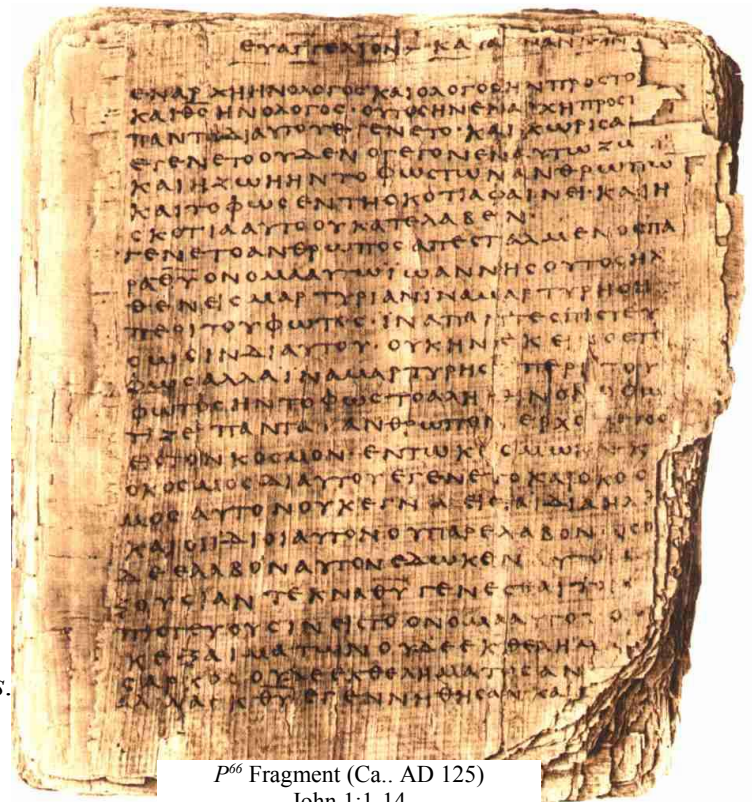 ΕΥΑΓΓΕΛΙΟΝ ΚΑΤΑ
ΕΝΑΡΧΗΗΝΟΛΟΓΟΣΚΑΙΟΛΟΓΟΣΗΝΠΡΟΣΤΟ
ΚΑΙΘΣΗΝΟΛΟΓΟΣ·ΟΥΤΟΣΗΝΕΝΑΡΧΗΠΡΟΣΤ
ΠΑΝΤΑΔΙΑΥΤΟΥΕΓΕΝΕΤΟ·ΚΑΙΧΩΡΙΣΑ
ΕΓΕΝΕΤΟΟΥΔΕΝΟΓΕΓΟΝΕΝΑΥΤΩΖΩ
ΚΑΙΗΖΩΗΗΝΤΟΦΩΣΤΩΝΑΝΘΡΩΠΩ
ΚΑΙΤΟΦΩΣΕΝΤΗΣΚΟΤΙΑΦΑΙΝΕΙ·ΚΑΙΗ
ΣΚΟΤΙΑΑΥΤΟΟΥΚΑΤΕΛΑΒΕΝ
ΓΕΝΕΤΟΑΝΘΡΩΠΟΣΑΠΕΣΤΑΛΜΕΝΟΣΠΑ
ΡΑΘΥΟΝΟΜΑΑΥΤΩΙΩΑΝΝΗΣΟΥΤΟΣΗΛ
ΘΕΝΕΙΣΜΑΡΤΥΡΙΑΝΙΝΑΜΑΡΤΥΡΗΣΗ
ΠΕΡΙΤΟΥΦΩΤΟΣ·ΙΝΑΠΑ ΤΕΣΠΙΣΤΕΥ
ΣΩΣΙΝΔΙΑΥΤΟΥ·ΟΥΚΗΝΕΚΕΙ ΟΣΤΟ
ΦΩΣΑΛΛΑΙΝΑΜΑΡΤΥΡΗΣ ΠΕΡΙΤΟΥ
ΦΩΤΟΣΗΝΤΟΦΩΣΤΟΑΛΗ ΙΝΟΝ ΦΩ
ΤΙΖΕΙΠΑΝΤΑ ΑΝΘΡΩΠΟΝ ΕΡΧΟ
ΕΙΣΤΟΝΚΟΣΜΟΝ·ΕΝΤΩΚΟΣΜΩΗΝ Κ
ΟΚΟΣΜΟΣΔΙΑΥΤΟΥΕΓΕΝΕΤΟΚΑΙΟΚΟΣ
ΜΟΣΑΥΤΟΝΟΥΚΕΓΝ ΕΙΣ ΙΔΙΑΗΛ
ΚΑΙΟΙΙΔΙΟΙΑΥΤΟΝΟΥΠΑΡΕΛΑΒΟΝ·ΟΣΟ
ΔΕΕΛΑΒΟΝΑΥΤΟΝΕΔΩΚΕΝ ΥΤΟΙ
ΞΟΥΣΙΑΝΤΕΚΝΑΘΥΓΕΝΕΣΘΑΙΤΟΙ
ΠΙΣΤΕΥΟΥΣΙΝΕΙΣΤΟΟΝΟΜΑΑΥΤΟΥ Ο
ΚΕΞΑΙΜΑΤΩΝΟΥΔΕΕΚΘΕΛΗΜ
ΣΑΡΚΟΣΟΥΔΕΕΚΘΕΛΗΜΑΤΟΣΑΝ
ΑΛΛΑΕΚΘΥΕΓΕΝΝΗΘΗΣΑΝΚΑΙ
s.
P⁶⁶ Fragment (Ca.. AD 125)
John 1:1-14